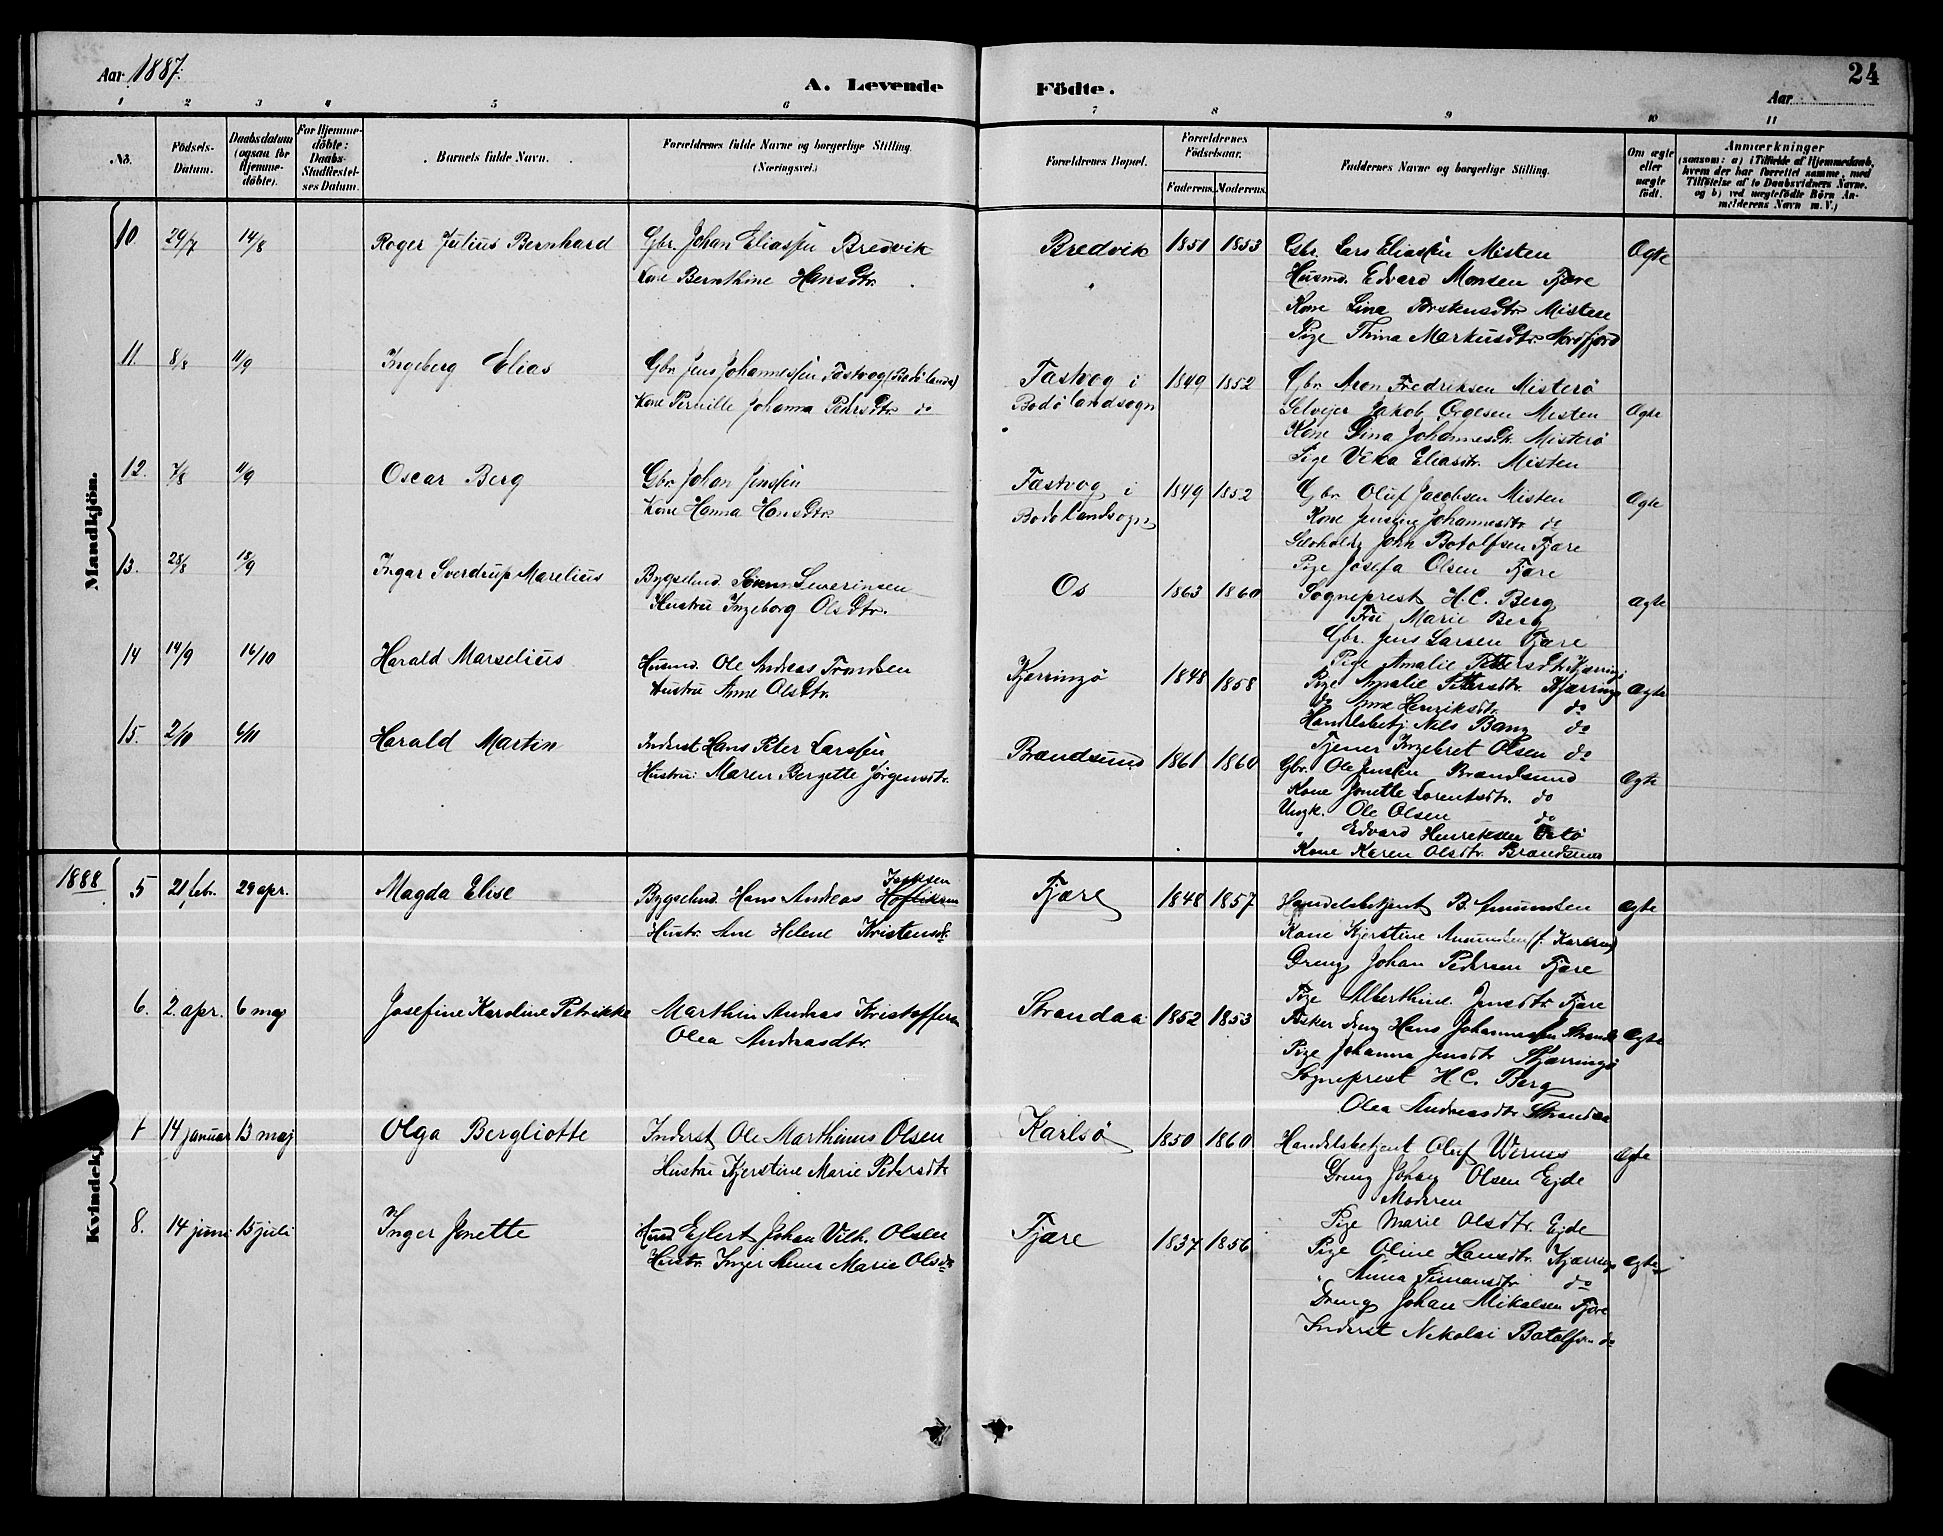 Aar 1887.
A. Levende Födte.
24
Aar
1 2 3 4 5 6 7 8 9 10 11
No.
Födsels-Datum.
Daabsdatum (ogsaa for Hjemme-döbte).
For Hjemme-döbte: Daabs-Stadfæstel-ses Datum.
Barnets fulde Navn.
Forældrenes fulde Navne og borgerlige Stilling. (Næringsvei.)
Forældrenes Bopæl.
Forældrenes Födselsaar.
Faderens. Moderens.
Faddernes Navne og borgerlige Stilling.
Om ægte eller uægte födt.
Anmærkninger
(saasom: a) i Tilfælde af Hjemmedaab, hvem der har forrettet samme, med Tilföielse af to Daabsvidners Navne, og b) ved uægtefödte Börn An-melderens Navn m. V.)
Mandkjön.
10. 29/7 14/8 Roger Julius Bernhard
Gbr. Johan Eliassen Bredvik
Kone Bernthine HansDtr.
Bredvik 1851 1853
Gbr. Lars Eliassen Misten
Husmd. Edvard Monsen Fjære
Kone Lina Torstensdtr. Misten
Pige Thina Markusdtr. Nordfjord
Ægte
11. 8/8 11/9 Ingeberg Elias
Gbr. Jens Johannessen Tastvog (Bodö lands)
Kone Pernille Johanna PedersDtr. do
Tastvog i
Bodö landsogn
1849 1852
Gbr. Aron Fredriksen Misterö
Selvejer Jakob Ørgesen Misten
Kone Lina JohannesDtr. Misterö
Pige Vika Eliasdtr. Misten
Ægte
12. 7/8 11/9 Oscar Berg
Gbr. Johan Jensen
Kone Hanna HansDtr.
Tastvog i
Bodö landsogn
1849 1852
Gbr. Oluf Jacobsen Misten
Kone Jensine Johannesdtr. do
John Botolfsen Fjære
Pige Josefa Olsen Fjære
Ægte
13. 28/8 18/9 Ingar Sverdrup Marelius
Bygselmd. Severinsen
Hustru Ingeborg OlsDtr.
Os 1863 1860
Sogneprest H. C. Berg
Fru Marie Berg
Gbr. Jens Larsen Fjære
Pige Amalie Pettersdtr. Kjærringö
Ægte
14 14/9 16/10 Harald Marselius
Husmd. Ole Andreas Trondsen
Hustru Anne OlsDtr.
Kjerringö 1848 1858
Pige Amalie Pettersdtr. Kjærringö
do Anne Henriksdtr. do
Handelsbetj. Nils Bang do
Tjener Ingebret Olsen do
Ægte
15. 2/10 6/11 Harald Martin
Inderst Hans Peter Larssen
Hustru Maren Bergette Jørgensdtr.
Brændsund 1861 1860
Gbr. Ole Jenssen Brændsund
Kone Jonette Lorentsdtr. do
Ungk. Ole Olsen do
" Edvard Henriksen
Kone Karen Olsdtr. Brændsund
Ægte
1888
Kvindekj
5 21 febr. 29 apr. Magda Elise
Isaksen
Bygselmd. Hans Andreas
Hustr. Ane Helene Kristensdtr.
Fjære 1848 1857
Handelsbetjent B. Amundsen
Kone Kjerstine Amundsen (f. Karlsen)
Dreng Johan Pedersen Fjære
Pige Alberthine Jensdtr. Fjære
Ægte
6. 2 apr. 6 maj Josefine Karoline Petrikke
Marthin Andreas Kristoffersen
Olea Andreasdtr.
Strandaa 1852 1853
Fisker dreng Hans Johannessen Strandå
Pige Johanna Jensdtr. Kjærringö
Sogneprest H. C. Berg
Olea Andreasdtr. Strandaa
Ægte
7 14 januar 13 maj Olga Bergliotte
Inderst Ole Marthinus Olsen
Hustru Kjerstine Marie Pedersdtr.
Karlsö 1850 1860
Handelsbetjent Oluf Wernes
Dreng Johan Olsen Ejde
Moderen
Pige Marie Olsdtr. Ejde
Ægte
8. 14 juni 15 juli Inger Jonette
Husmd. Ejlert Johan Vilh. Olsen
Hustr. Inger Anna Marie Olsdtr.
Fjære 1837 1856
Pige Oline Hansdtr. Kjærringö
" Anna Simonsdtr. do
Dreng Johan Mikalsen Fjære
Inderst Nekolai Botolfsen do
Ægte